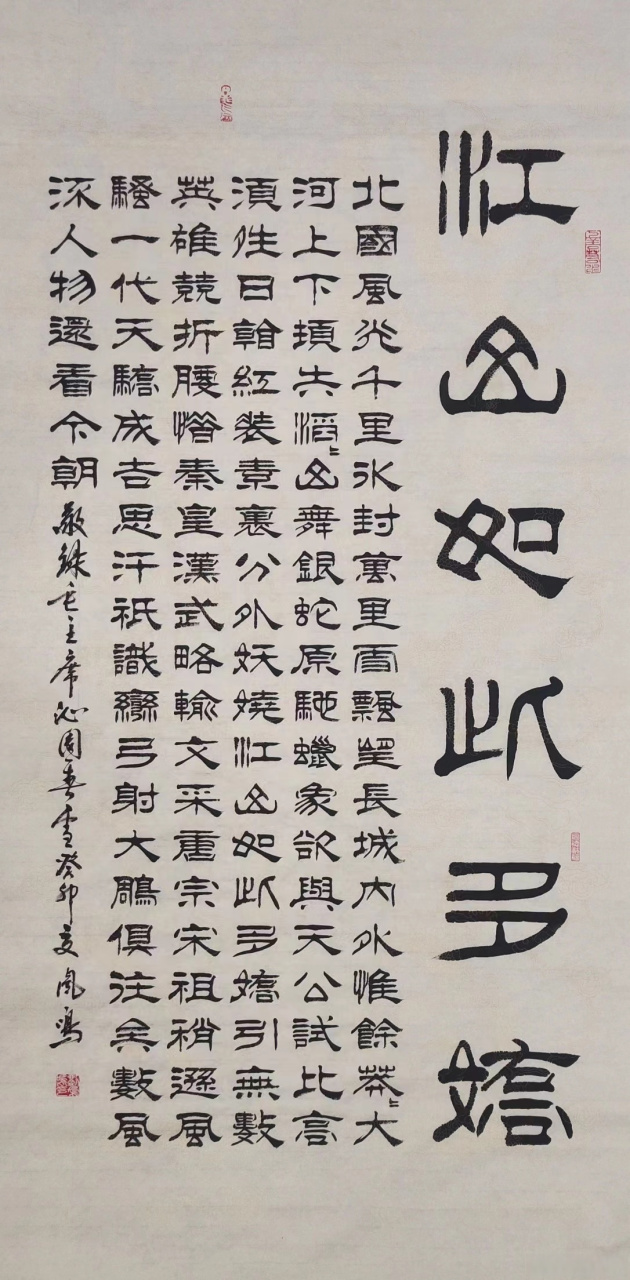 江山如此多嬌
北國風光千里冰封萬里雪飄望長城内外惟餘莽〻大
河上下頓失滔〻山舞銀蛇原馳蠟象欲與天公試比高
須夝日看紅裝素裹分外妖嬈江山如此多嬌引無數
英雄競折腰惜秦皇漢武略輸文采唐宗宋祖稍遜風
騷一代天驕成吉思汗祇識彎弓射大鵰俱往矣數風
流人物還看今朝敬錄毛主席沁園春雪癸卯夏鳳鳴